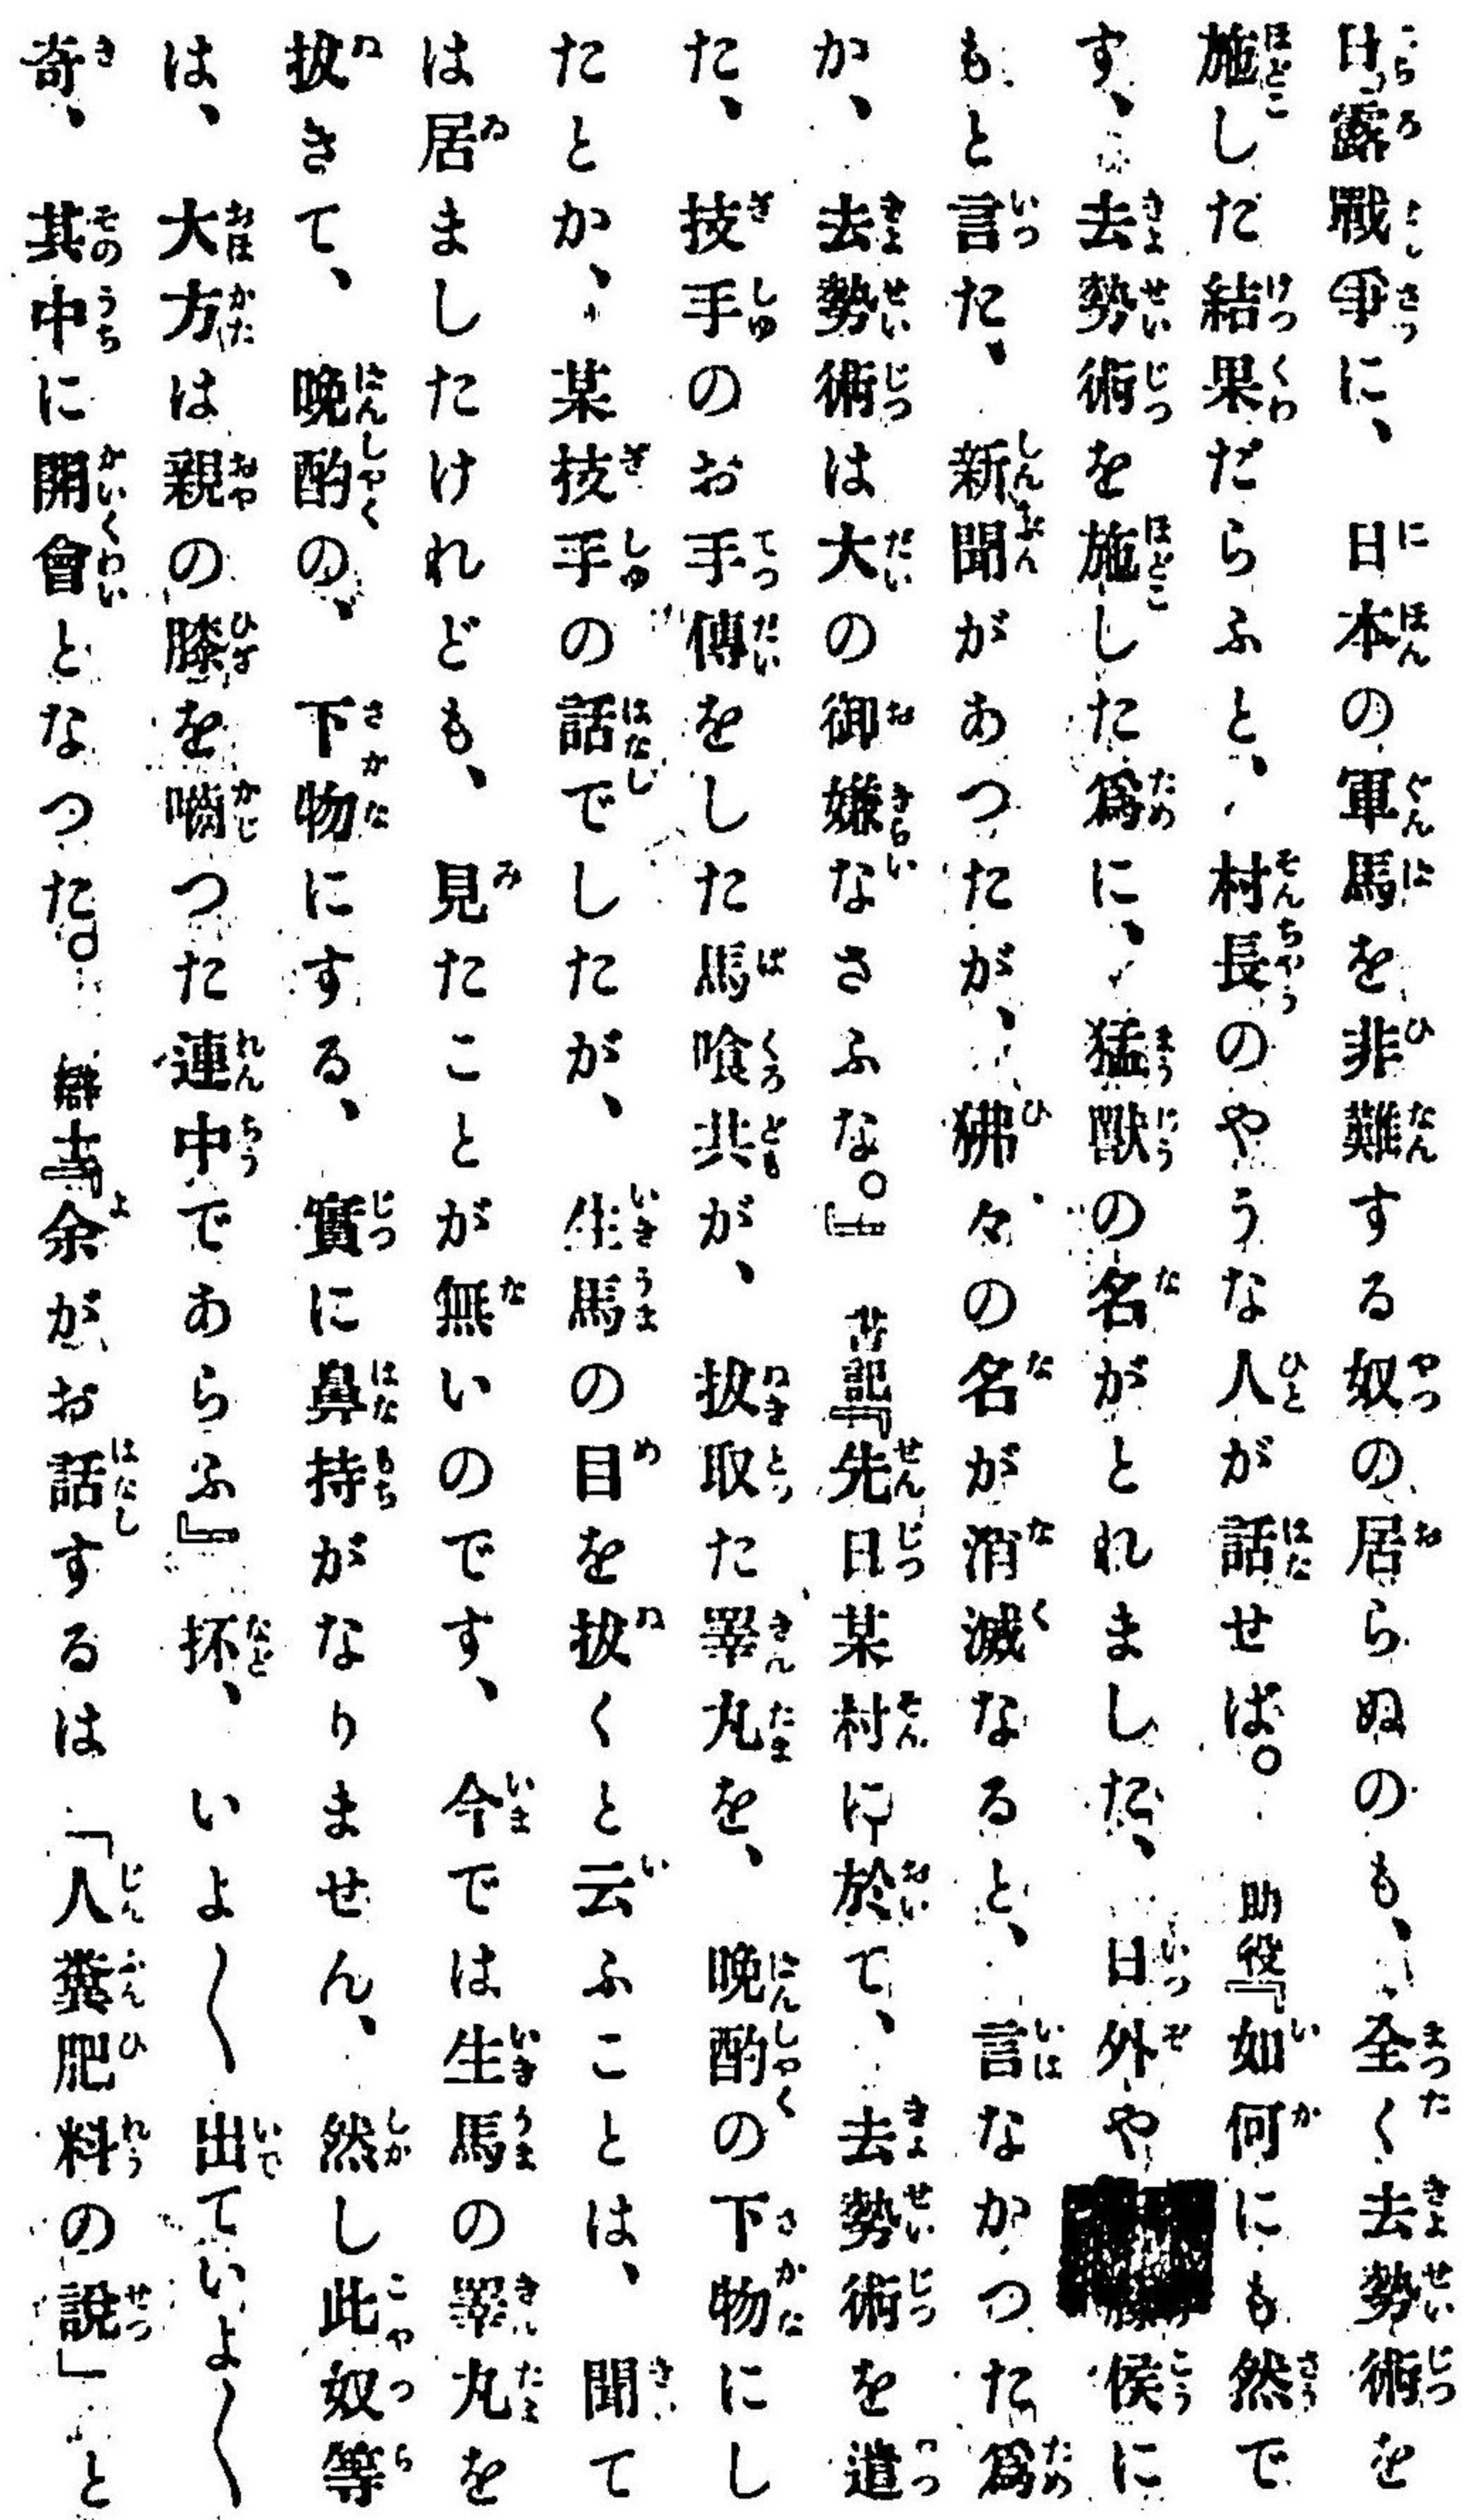 日露戰爭に、日本の軍馬を非難する奴の居らぬのも、全く去勢術を
施しだ結果だらふと、村長のやうな人が話せば。助役『如何にも然で
す、去勢術を施した爲に、猛獸の名がとれました、日外や侯に
もと言た、新聞があつたが、狒々の名が消滅なると、言なかつた爲
か、去勢術は大の御嫌なさふな。』書記『先日某村に於て、去勢術を遣
た、技手のお手傳をした馬喰共が、拔取た睪丸を、晩酌の下物にし
たとか、某技手の話でしたが、生馬の目を拔くと云ふことは、聞て
は居ましたけれども、見たことが無いのです、今では生馬の睪丸を
拔きて、晩酌の、下物にする、實に鼻持がなりません、然し此奴等
は、大方は親の膝を嚙つた連中であらふ』抔、いよ〱出ていよ〱
奇、其中に開會となつた。辯士『余がお話するは「人糞肥料の說」と